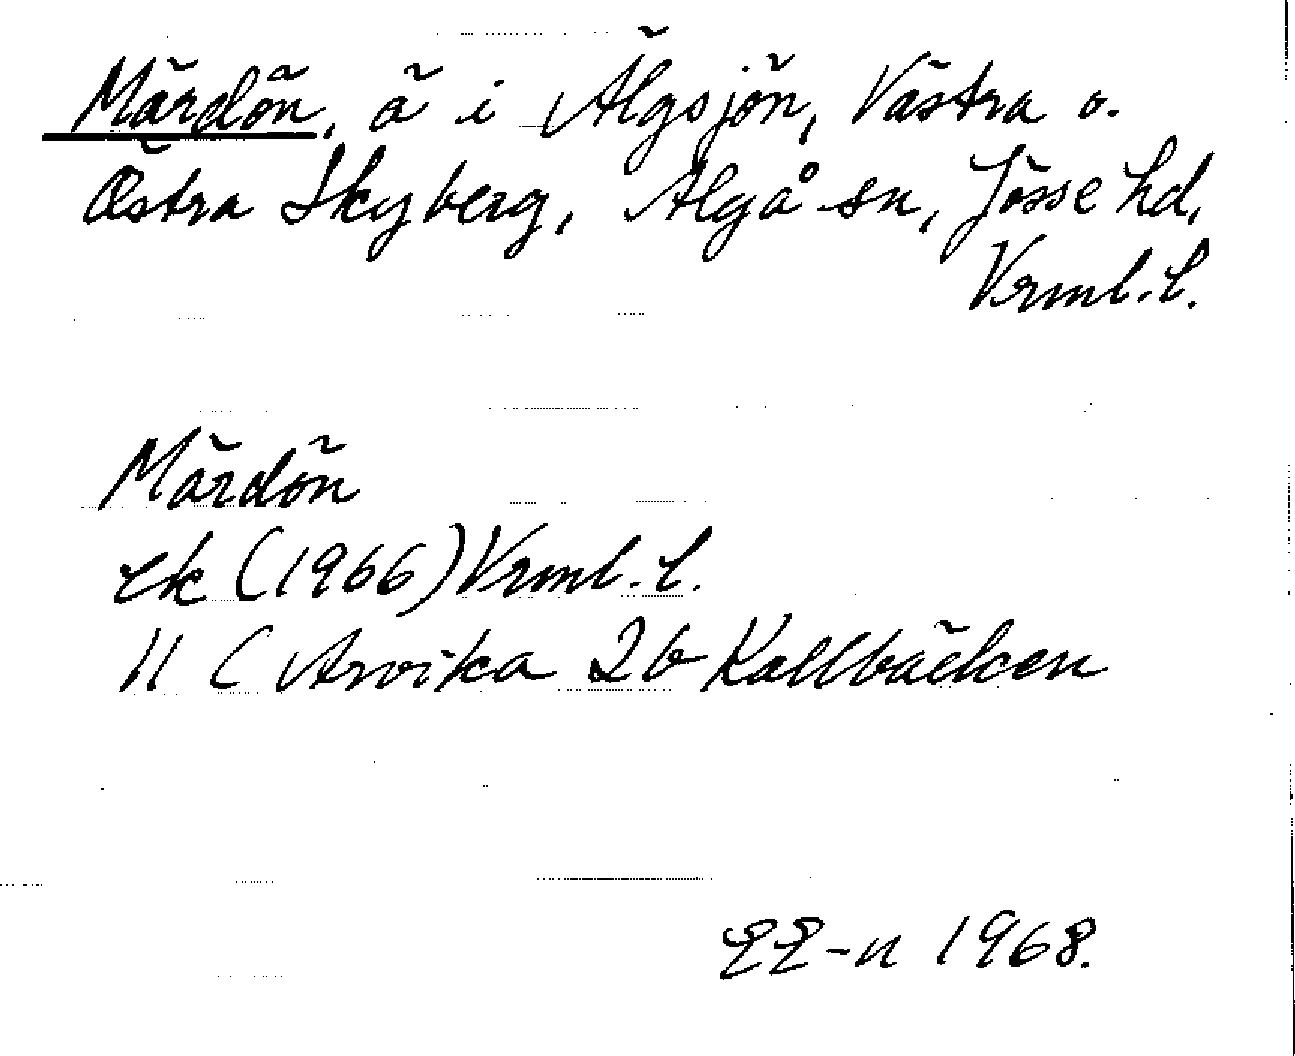 Mårdön, ö i Älgsjön, Västra o.
Östra Skyberg, Älgå sn, Jösse hd,
Vrml. l.
Mårdön
ek (1966) Vrml. l.
11 C Arvika 2b Kallbäcken
EE-n 1968.